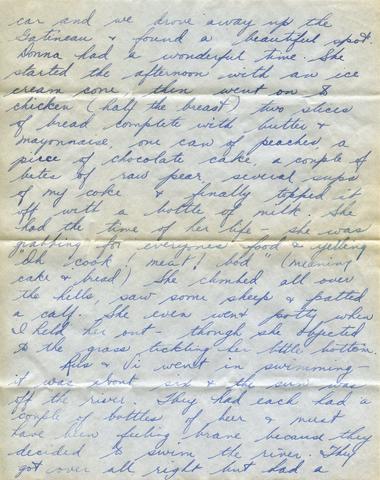 car and we drove away up the
Gatineau & found a beautiful spot.
Donna had a wonderful time. She
started the afternoon with an ice
cream cone, then went on to
chicken (half the breast) two slices
of bread complete with butter &
mayonnaise, one can of peaches, a
piece of chocolate cake, a couple of
bites of raw pear, several sups
of my coke & finally topped it
off with a bottle of milk. She
had the time of her life - she was
grabbing for everyones food & yelling
"cook! meat! bod" (meaning
cake & bread) She climbed all over
the hills, saw some sheep & patted
a calf. She even went potty when
I held her out - though she objected
to the grass tickling her little bottom.
& Vi went in swimming -
it was about six & the sun was
off the river. They had each had a
couple of bottles of beer & must
have been feeling brave because they
decided to swim the river. They
got over all right but had a